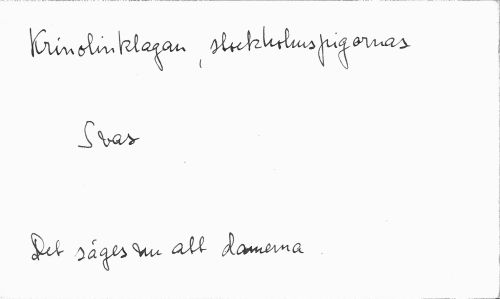 Krinolinklagan, stockholmspigornas
Svar
Det säges nu att damerna